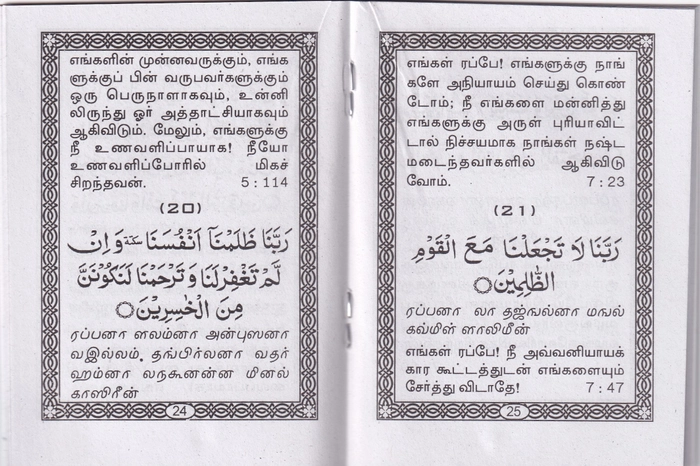 எங்களின் முன்னவருக்கும், எங்க
ளுக்குப் பின் வருபவர்களுக்கும்
ஒரு பெருநாளாகவும், உன்னி
லிருந்து ஓர் அத்தாட்சியாகவும்
ஆகிவிடும். மேலும், எங்களுக்கு
நீ உணவளிப்பாயாக! நீயோ
உணவளிப்போரில் மிகச்
சிறந்தவன். 5:114
(20)
رَبَّنَا ظَلَمْنَآ اَنْفُسَنَا سكتة وَاِنْ
لَّمْ تَغْفِرْلَنَا وَتَرْحَمْنَا لَنَكُوْنَنَّ
مِنَ الْخٰسِرِيْنَ
ரப்பனா ளலம்னா அன்புஸனா
வஇல்லம். தஙபிர்லனா வதர்
ஹம்னா லநகூனன்ன மினல்
காஸிரீன்
24
எங்கள் ரப்பே! எங்களுக்கு நாங்
களே அநியாயம் செய்து கொண்
டோம்; நீ எங்களை மன்னித்து
எங்களுக்கு அருள் புரியாவிட்
டால் நிச்சயமாக நாங்கள் நஷ்ட
மடைந்தவர்களில் ஆகிவிடு
வோம். 7:23
(21)
رَبَّنَا لَا تَجْعَلْنَا مَعَ الْقَوْمِ
الظّٰلِمِيْنَ
ரப்பனா லா தஜ்அல்னா மஅல்
கவ்மிள் ளாலிமீன்
எங்கள் ரப்பே! நீ அவ்வனியாயக்
கார கூட்டத்துடன் எங்களையும்
சேர்த்து விடாதே! 7:47
25